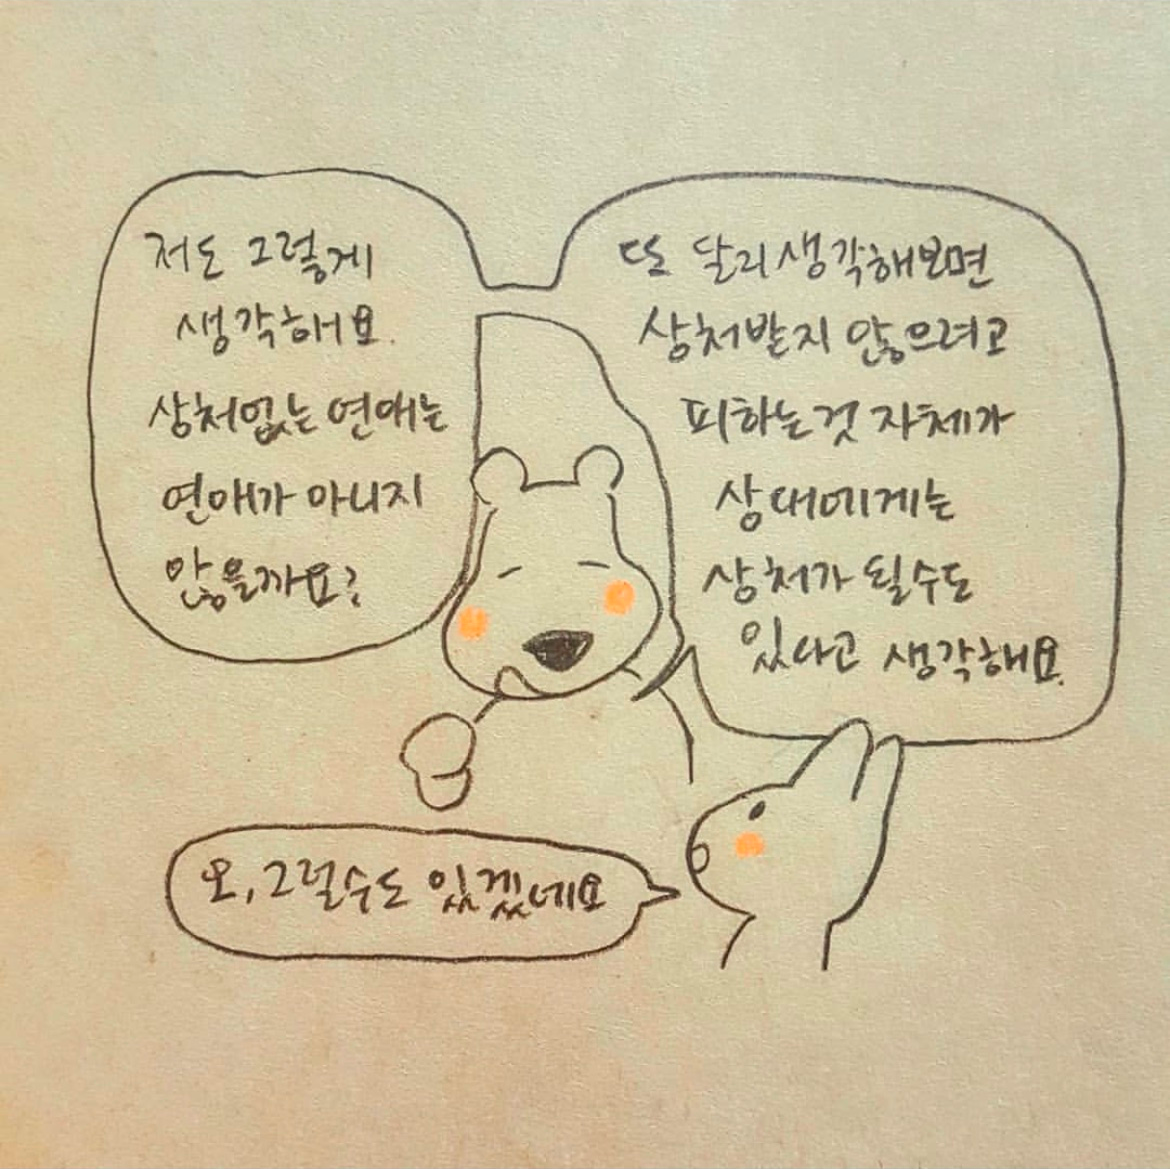 저도 그렇게
생각해요.
상처없는 연애는
연애가 아니지
않을까요?
또 달리 생각해보면
상처받지 않으려고
피하는것 자체가
상대에게는
상처가 될수도
있다고 생각해요.
오, 그럴수도 있겠네요